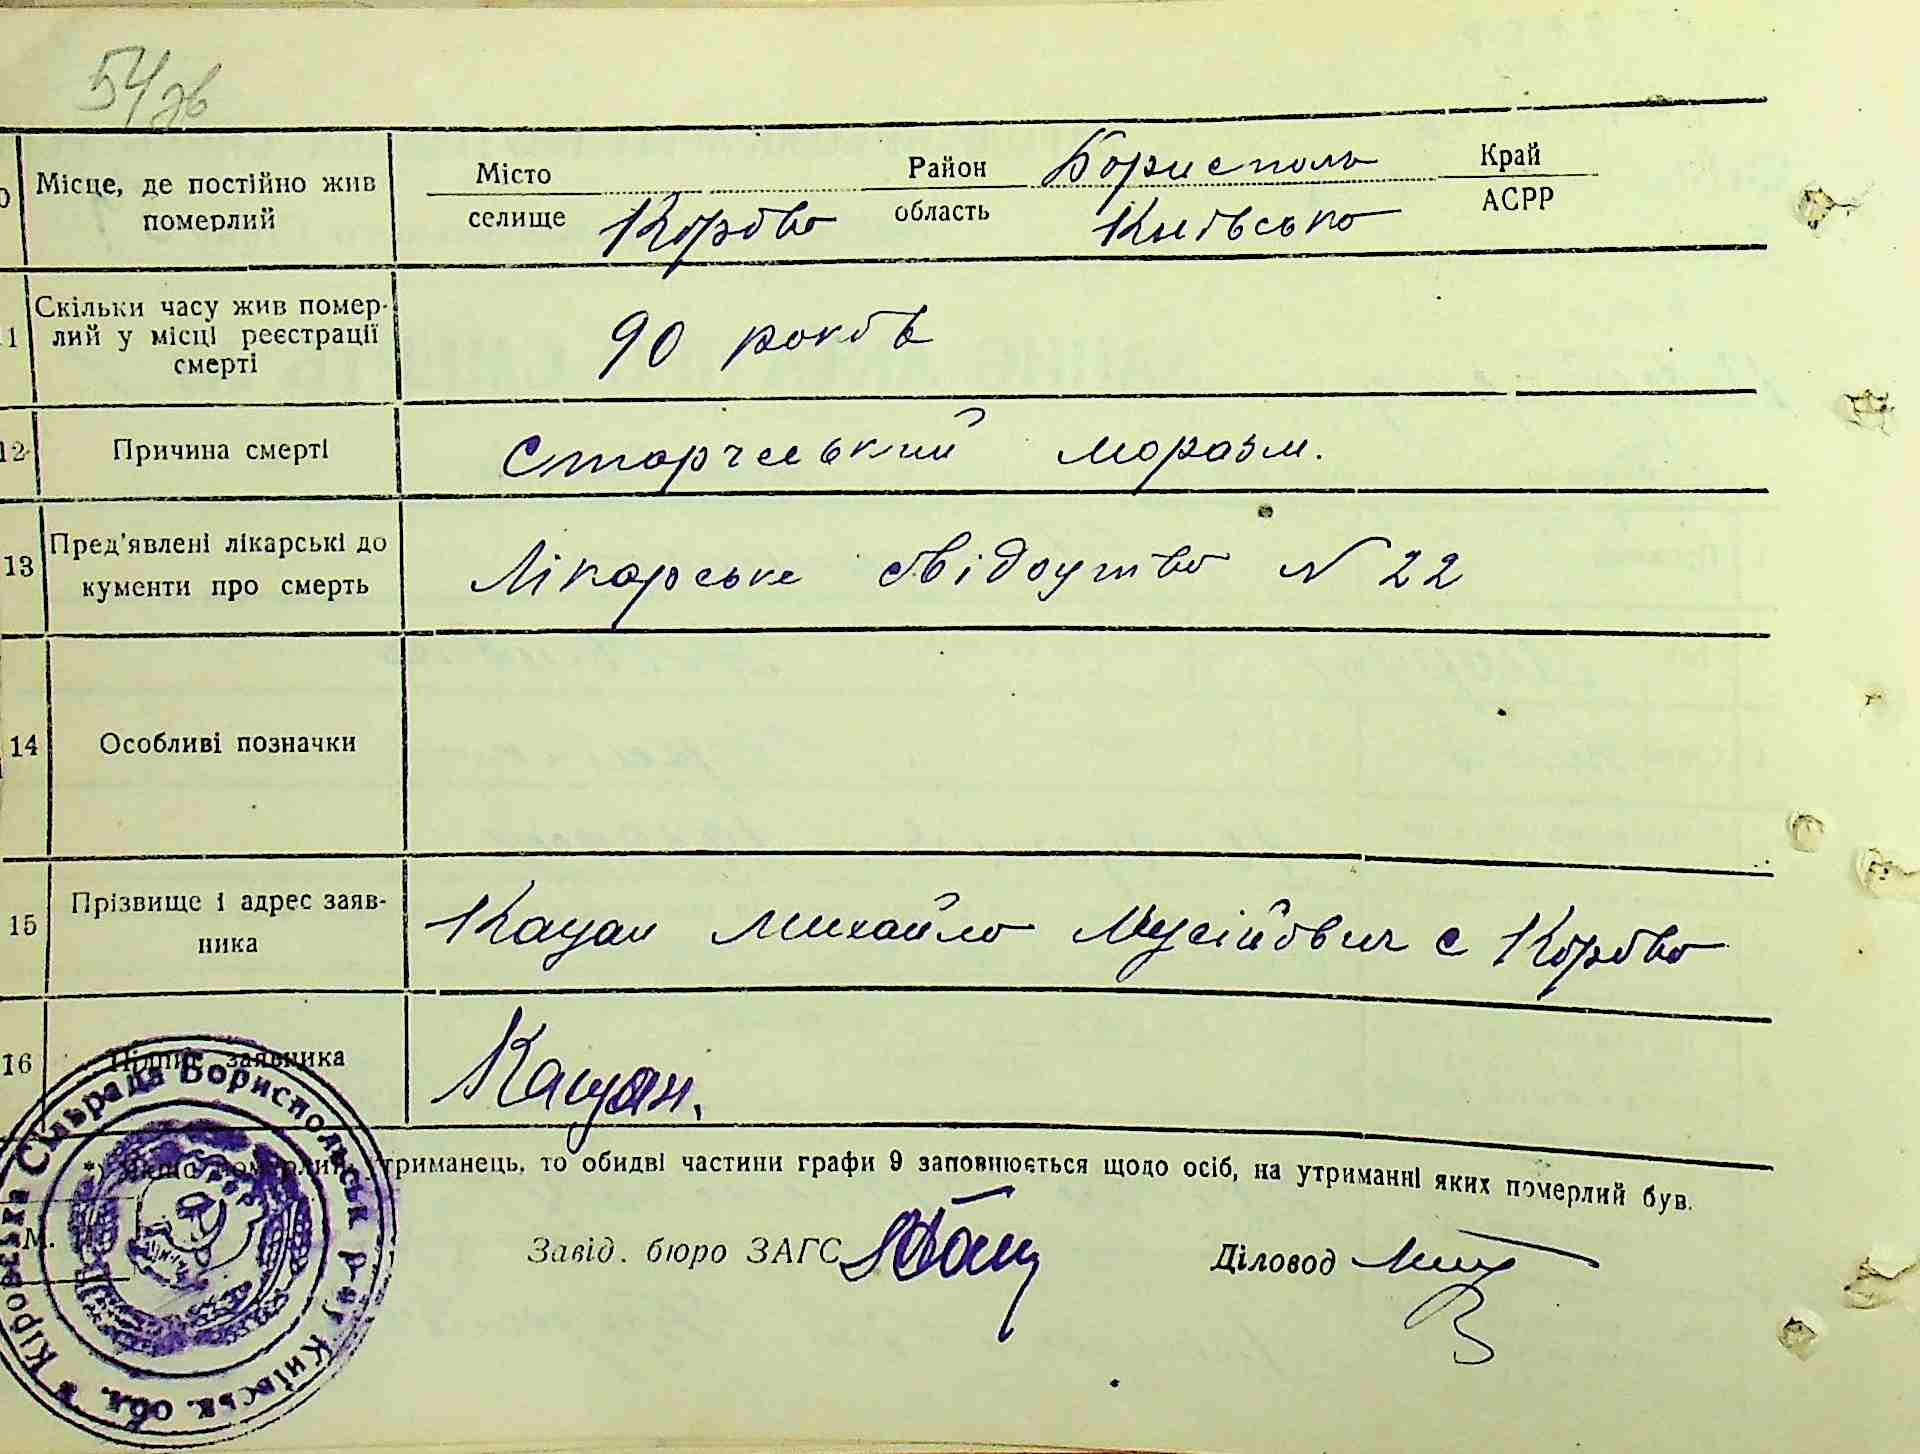 54зв
10 Місце, де постійно жив померлий
Місто Район Бориспіль Край
селище Кірово область Київсько АСРР
11 Скільки часу жив помер-
лий у місці реєстрації
смерті
90 років
12 Причина смерті
Старчеський маразм.
13 Пред'явлені лікарські до
кументи про смерть
Лікарське свідоцтво N 22
14 Особливі позначки
15 Прізвище і адрес заяв-
ника
Кацан Михайло Мусійович с Кірово
16 Підпис заявника
Кацан.
*) Якщо померлий утриманець, то обидві частини графи 9 заповнюється щодо осіб, на утриманні яких померлий був.
М.
Завід. бюро ЗАГС
Діловод
Кіровська Сільрада Бориспольськ р-ну Київськ. обл.
УРСР